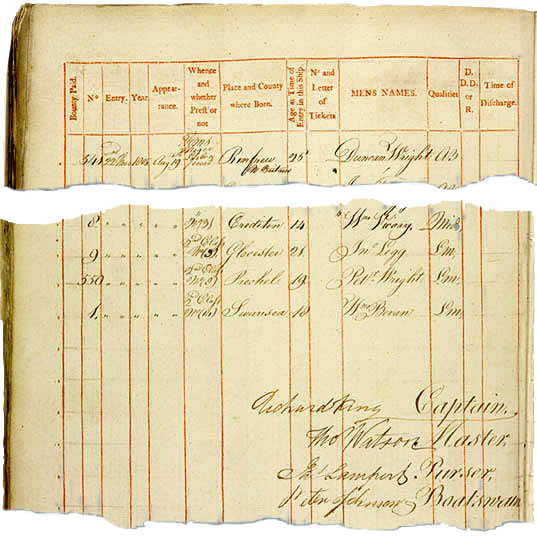 Bounty Paid. Nº Entry. Year. Appear-ance. Whence and whether Prest or not Place and County where Born. Age at Time of Entry in this Ship. Nº and Letter of Tickets MENS NAMES. Qualities D. D.D. or R. Time of Discharge.
548 1805 Augt 19 Renfrew 25 Duncan Wright AB
8 " " " " Crediton 14 Wm Mid
9 " " " " 2d Class Glocester 21 Jno Legg Lm
550 " " " " Class 19 Petr Wright Lm
1 " " " " 2d Class Swansea 18 Wm Bevan Lm
Richard King Captain.
Tho Watson Master.
Jas Lampert Purser.
Peter Johnson Boatswain